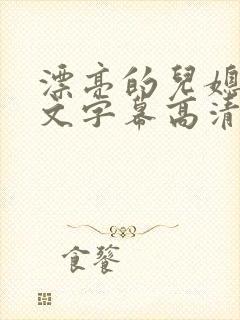 漂亮的兒媳
文字幕高清
食饕